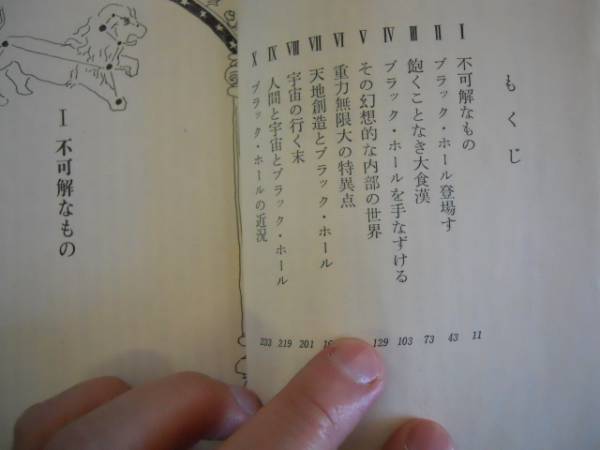 もくじ
Ⅰ 不可解なもの 11
Ⅱ ブラック・ホール登場す 43
Ⅲ 飽くことなき大食漢 73
Ⅳ ブラック・ホールを手なずける 103
Ⅴ その幻想的な内部の世界 129
Ⅵ 重力無限大の特異点
Ⅶ 天地創造とブラック・ホール
Ⅷ 宇宙の行く末 201
Ⅸ 人間と宇宙とブラック・ホール 219
Ⅹ ブラック・ホールの近況 233
Ⅰ 不可解なもの